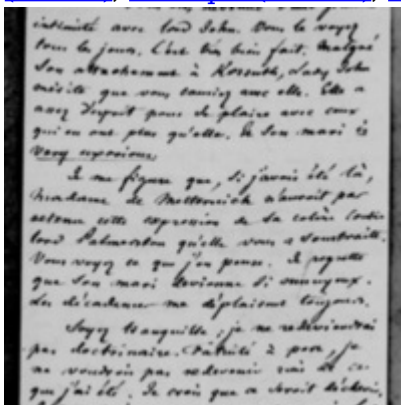 intimité avec lord John. Vous le voyez
tous les jours. C'est très bien fait. Malgré
son attachement à Kossuth, Lady John
mérite que vous causiez avec elle. Elle a
assez d'esprit pour se plaire avec ceux
qui en ont plus qu'elle. Et son mari is
very uxorious.
Je me figure que, si j'avois été là,
Madame de Metternich n'auroit pas
retenu cette expression de sa colère contre
lord Palmerston qu'elle vous a soustraite.
Vous voyez ce que j'en pense. Je regrette
que son mari devienne si ennuyeux.
Les décadences me déplaisent toujours.
Soyez tranquille ; je ne redeviendrai
pas doctrinaire. Vanité à part, je
ne voudrois pas redevenir rien de ce
que j'ai été. Je crois que ce seroit déchoir.